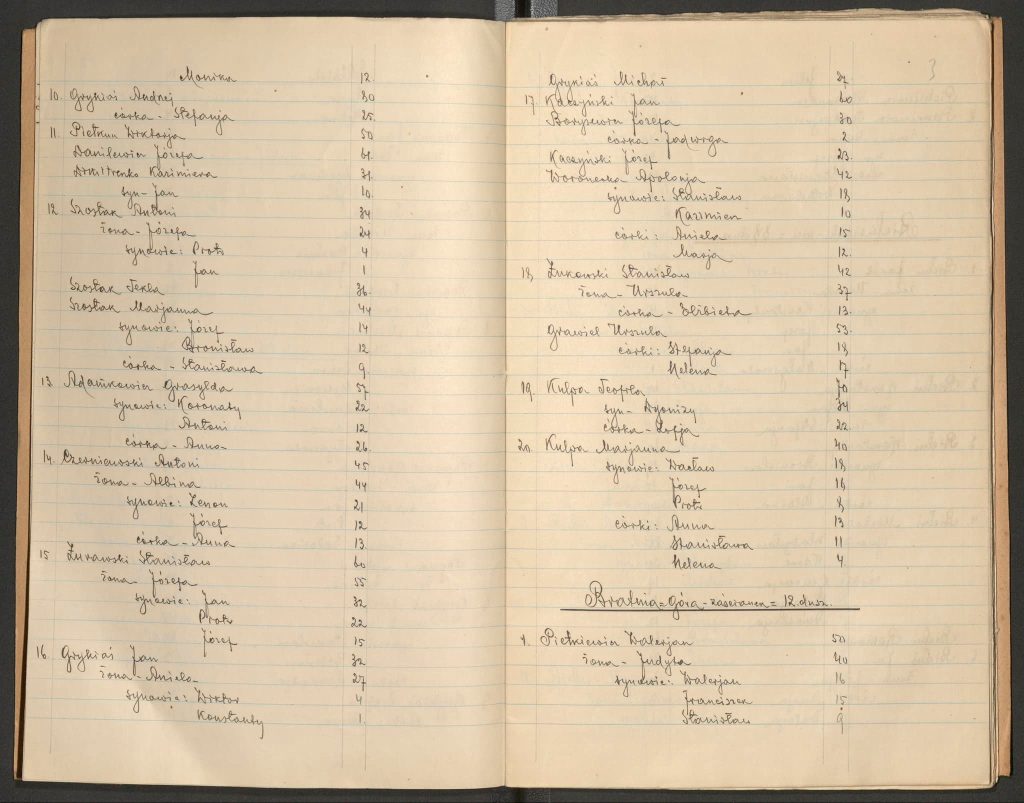 Monika 12
10. Grykiś Andrej 30
córka - Stefanja 25.
11. Pietkun Wiktorja 50
Danilewicz Józefa 61.
Dmitrenko Kazimiera 31.
syn - Jan 10.
12. Szostak Antoni 34
żona - Józefa 24
synowie: Prot 4
Jan 1
Szostak Tekla 36.
Szostak Marjanna 44
synowie: Józef 14
Bronisław 12
córka - Stanisława 9
13. Adamkowicz Grasylda 57
synowie: Koronaty 22
Antoni 12
córka - Anna 26.
14. Czerniewski Antoni 45
żona - Albina 44
synowie: Zenon 21
Józef 12
córka - Anna 13.
15. Żurawski Stanisław 60
żona - Józefa 55
synowie: Jan 32
Prot 22
Józef 15
16. Grykiś Jan 32
żona - Aniela 27
synowie: Wiktor 4
Konstanty 1.
3
Grykiś Michał
17. Kaczyński Jan 60
Borysewicz Józefa 30
córka - Jadwiga 2
Kaczyński Józef 23.
Woronecka Apolonja 42
synowie: Stanisław 18
Kazimierz 10
córki: Aniela 15
Marja 12.
18. Żukowski Stanisław 42
żona - Urszula 37
córka - Elżbieta 13.
Grawiel Urszula 53.
córki: Stefanja 18
Helena 17
19. Kulpa Teofila 70
syn - Dyonizy 34
córka - Zofja 22
20. Kulpa Marjanna 40
synowie: Wacław 18
Józef 16
Prot 8
córki: Anna 13
Stanisława 11
Helena 4.
Bratnia=Góra - zaścianek = 12. dusz.
1. Pietkiewicz Walerjan 50
żona - Judyta 40
synowie: Walerjan 16
Franciszek 15
Stanisław 9